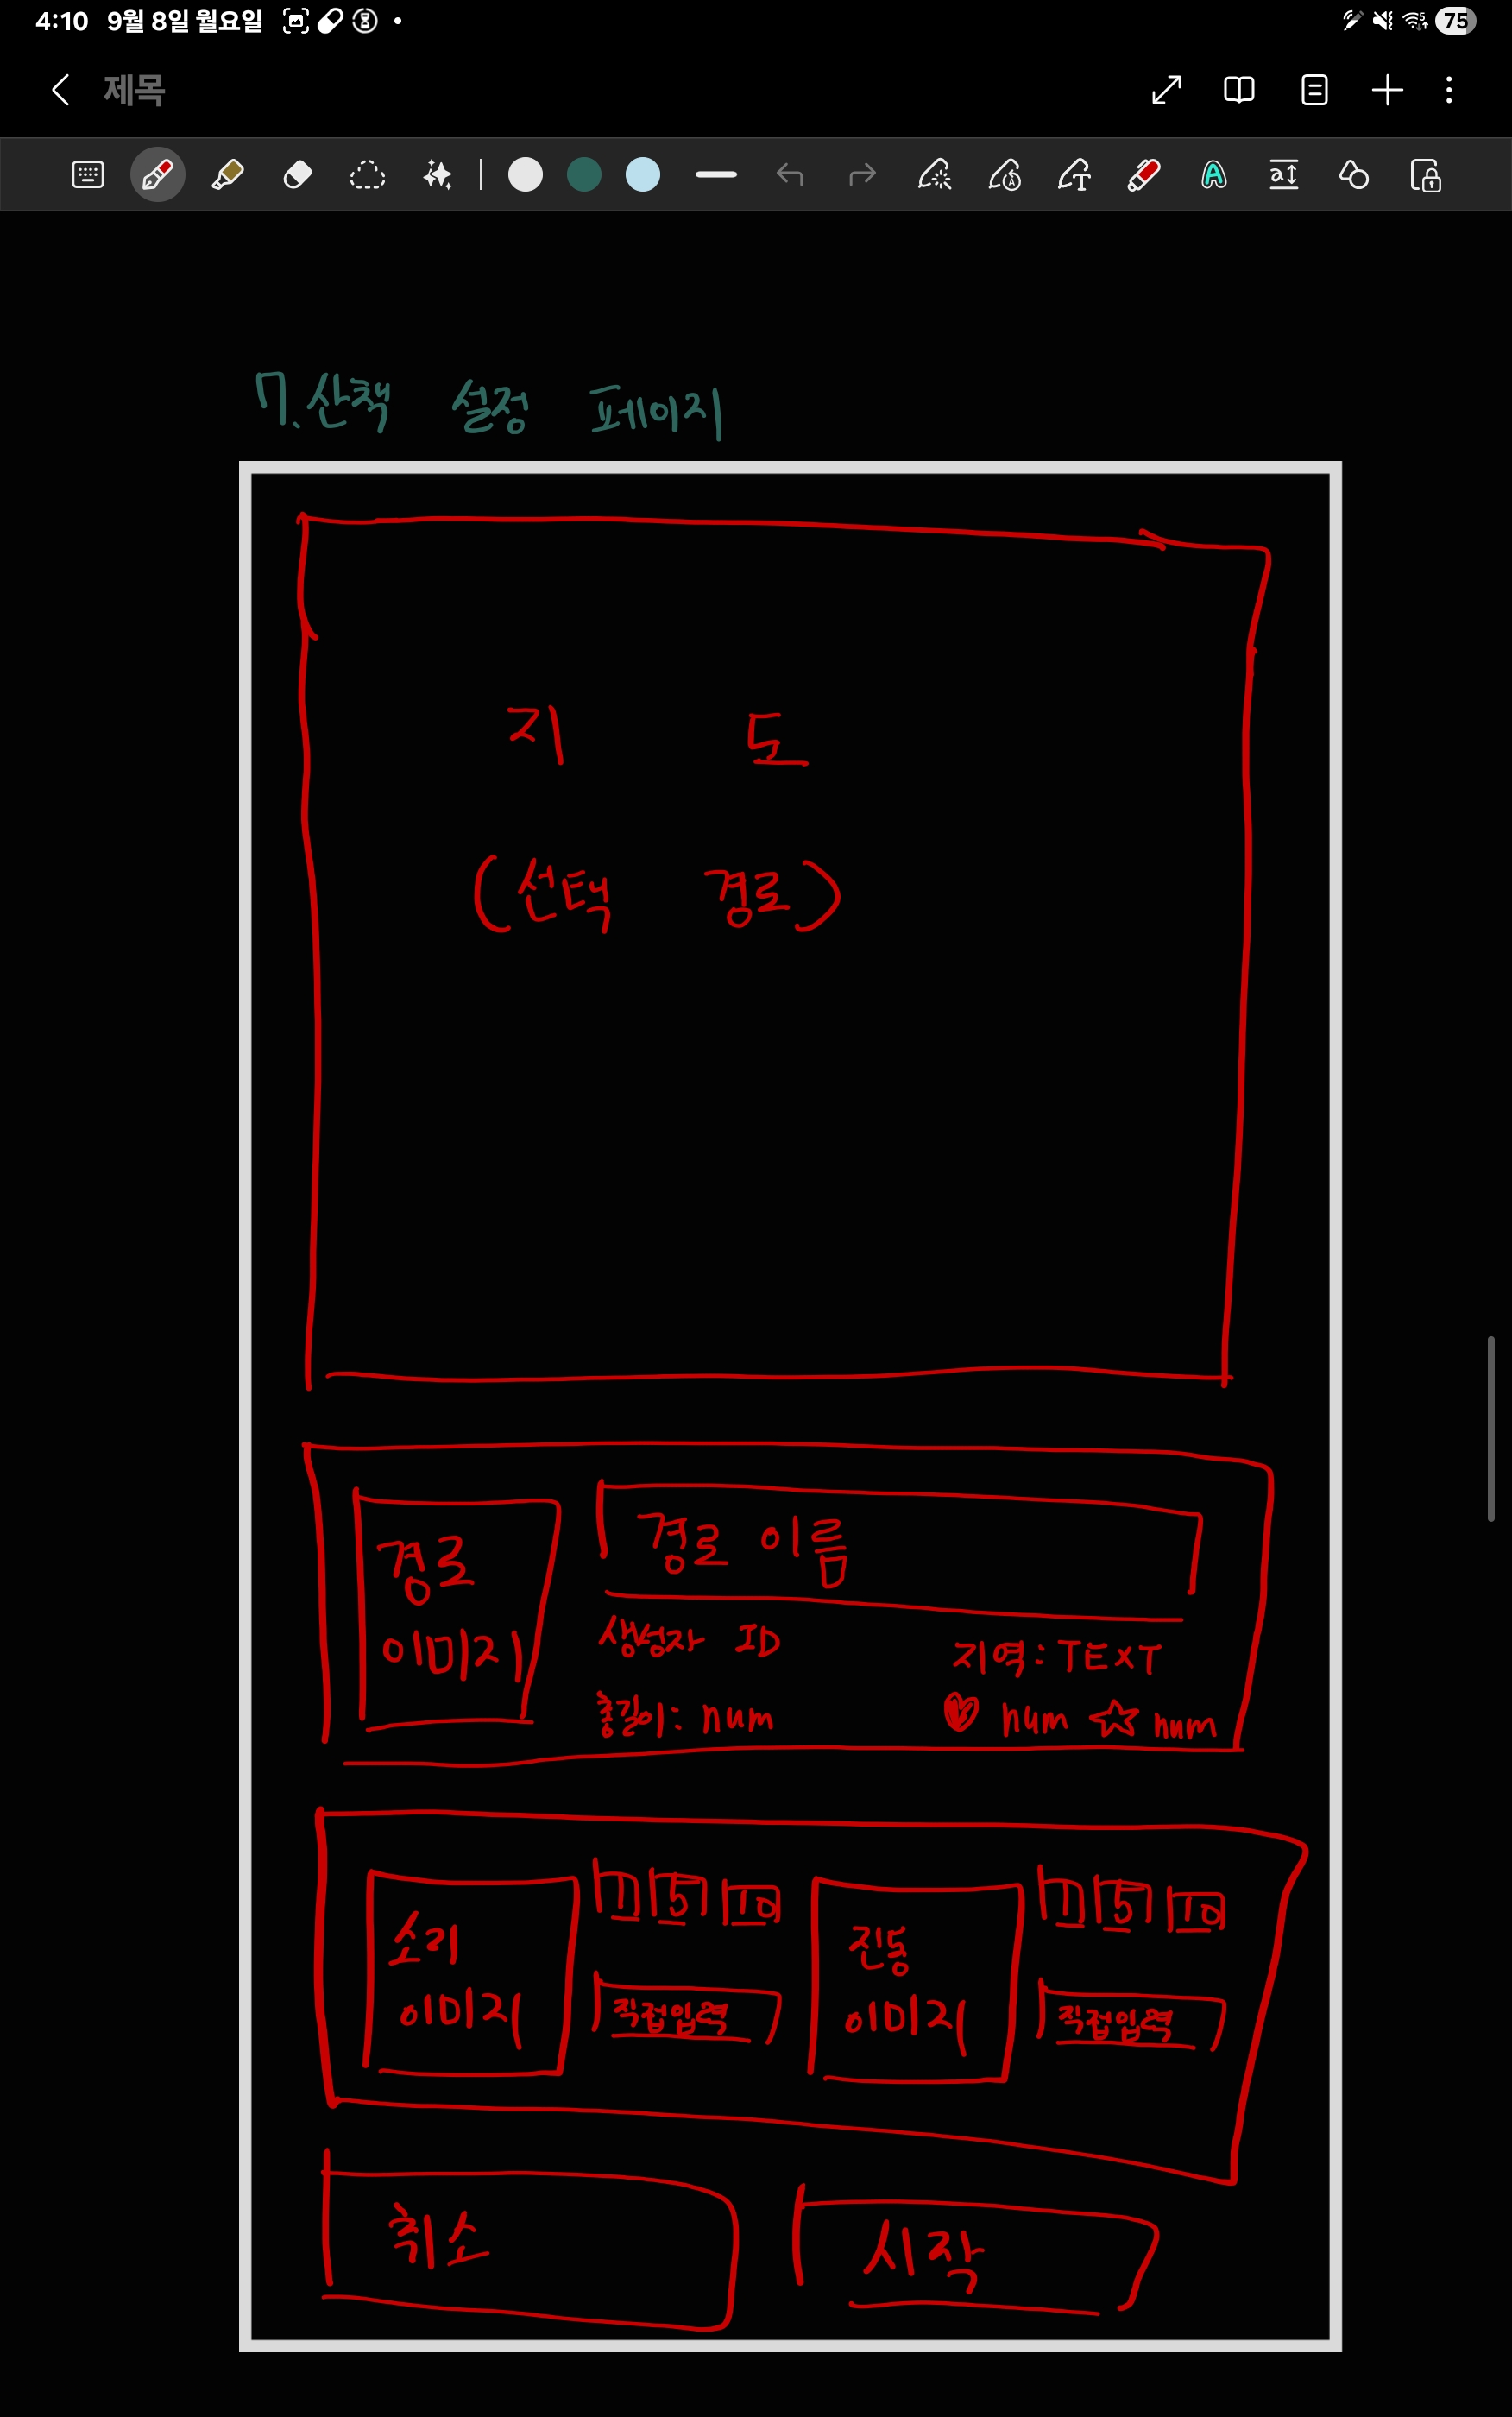 4:10 9월 8일 월요일
75
제목
7. 산책 설정 페이지
지 도
(선택 경로)
경로
이미지
경로 이름
생성자 ID
지역: TEXT
총길이: num
num
num
소리
이미지
1 5 10
직접입력
진동
이미지
1 5 10
직접입력
취소
시작